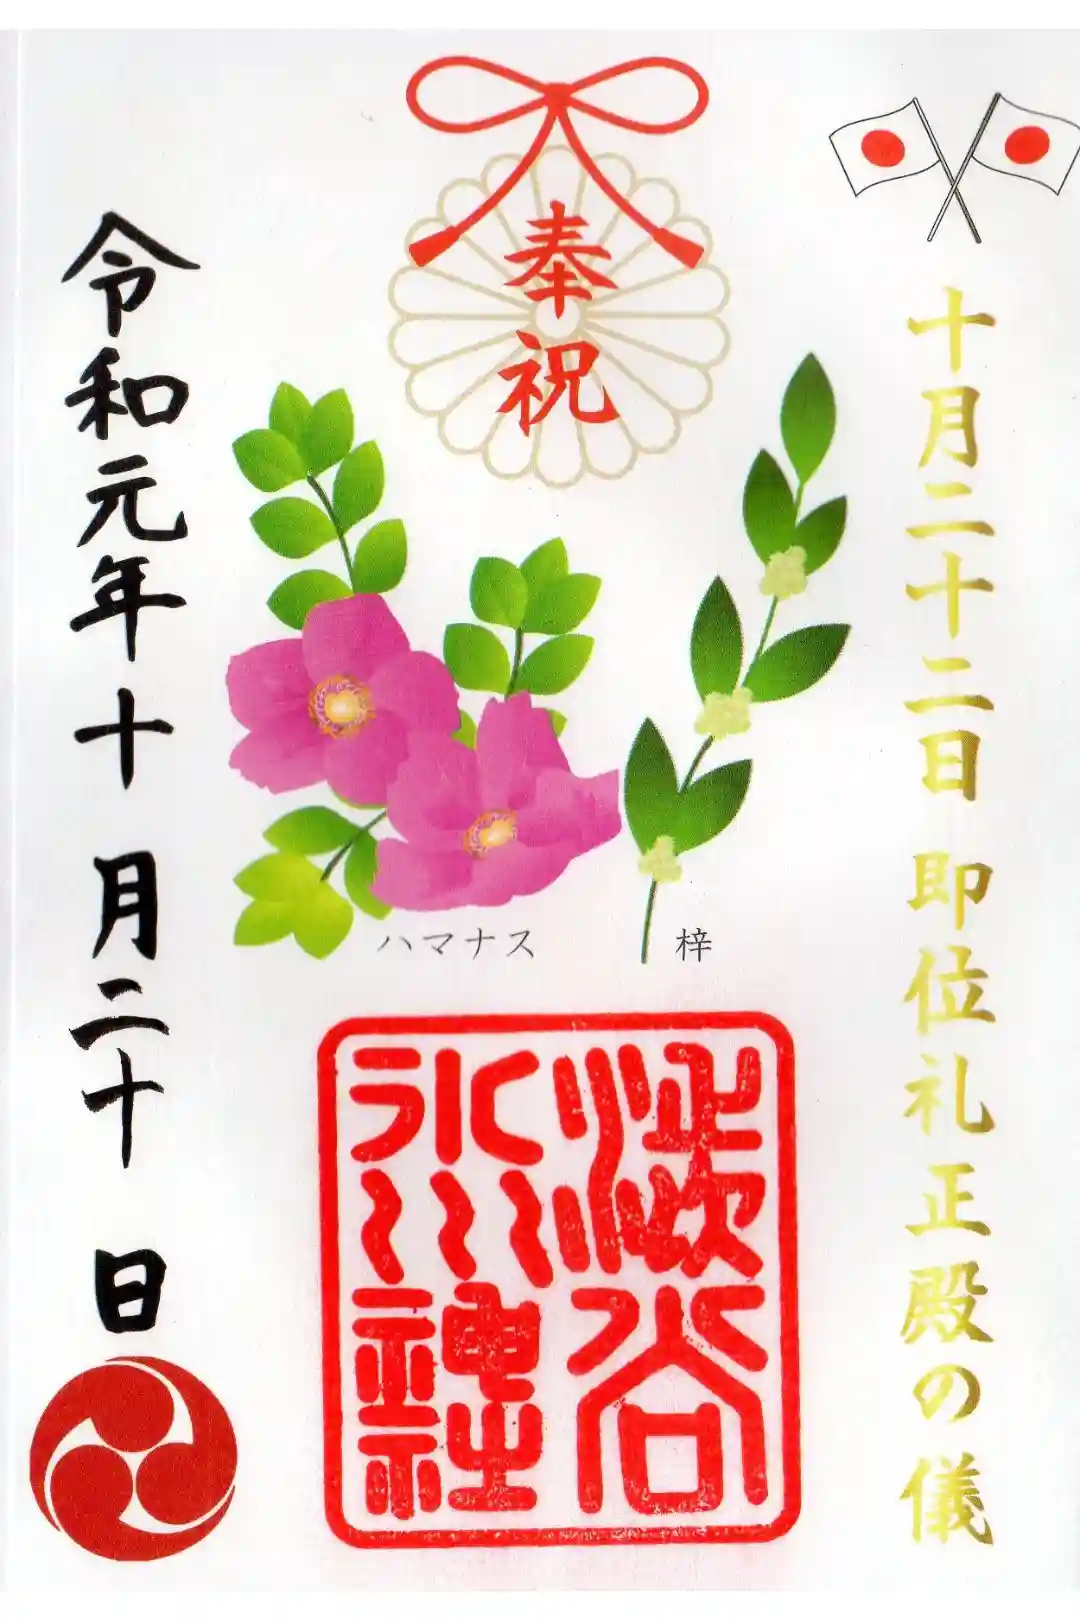 十月二十二日 即位礼正殿の儀
奉祝
ハマナス
梓
澁谷
氷川神社
令和元年十月二十日